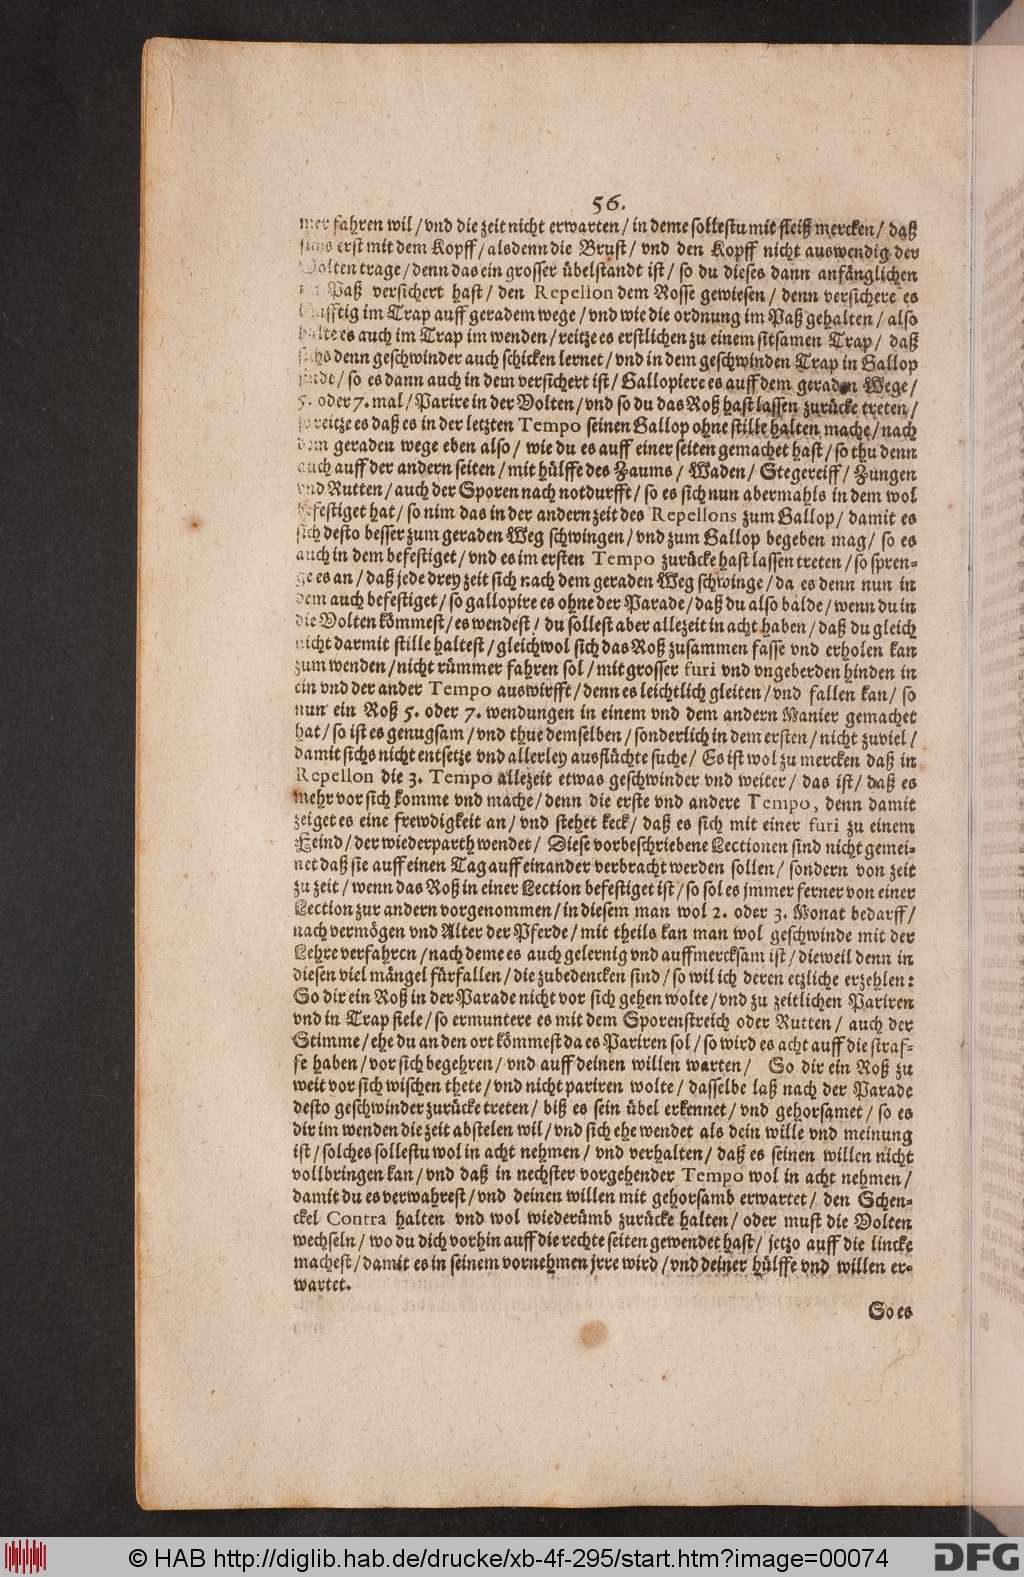 56.
mer fahren wil / vnd die zeit nicht erwarten / in deme sollestu mit fleiß mercken / daß
sichs erst mit dem Kopff / alsdenn die Brust / vnd den Kopff nicht auswendig der
Volten trage / denn das ein grosser übelstandt ist / so du dieses dann anfänglichen
im Paß versichert hast / den Repellon dem Rosse gewiesen / denn versichere es
künfftig im Trap auff geradem wege / vnd wie die ordnung im Paß gehalten / also
halte es auch im Trap im wenden / reitze es erstlichen zu einem sitsamen Trap / daß
sichs denn geschwinder auch schicken lernet / vnd in dem geschwinden Trap in Gallop
finde / so es dann auch in dem versichert ist / Gallopiere es auff dem geraden Wege /
5. oder 7. mal / Parire in der Volten / vnd so du das Roß hast lassen zurücke treten /
so reitze es daß es in der letzten Tempo seinen Gallop ohne stille halten mache / nach
dem geraden wege eben also / wie du es auff einer seiten gemachet hast / so thu denn
auch auff der andern seiten / mit hülffe des Zaums / Waden / Stegereiff / Zungen
vnd Rutten / auch der Sporen nach notdurfft / so es sich nun abermahls in dem wol
befestiget hat / so nim das in der andern zeit des Repellons zum Gallop / damit es
sich desto besser zum geraden Weg schwingen / vnd zum Gallop begeben mag / so es
auch in dem befestiget / vnd es im ersten Tempo zurücke hast lassen treten / so spren-
ge es an / daß jede drey zeit sich nach dem geraden Weg schwinge / da es denn nun in
dem auch befestiget / so gallopire es ohne der Parade / daß du also balde / wenn du in
die Volten kömmest / es wendest / du sollest aber allezeit in acht haben / daß du gleich
nicht darmit stille haltest / gleichwol sich das Roß zusammen fasse vnd erholen kan
zum wenden / nicht rümmer fahren sol / mit grosser furi vnd vngeberden hinden in
ein vnd der ander Tempo auswirfft / denn es leichtlich gleiten / vnd fallen kan / so
nun ein Roß 5. oder 7. wendungen in einem vnd dem andern Manier gemachet
hat / so ist es genugsam / vnd thue demselben / sonderlich in dem ersten / nicht zuviel /
damit sichs nicht entsetze vnd allerley ausflüchte suche / Es ist wol zu mercken daß in
Repellon die 3. Tempo allezeit etwas geschwinder vnd weiter / das ist / daß es
mehr vor sich komme vnd mache / denn die erste vnd andere Tempo, denn damit
zeiget es eine frewdigkeit an / vnd stehet keck / daß es sich mit einer furi zu einem
Feind / der wiederparth wendet / Diese vorbeschriebene Lectionen sind nicht gemei-
net daß sie auff einen Tag auff einander verbracht werden sollen / sondern von zeit
zu zeit / wenn das Roß in einer Lection befestiget ist / so sol es jmmer ferner von einer
Lection zur andern vorgenommen / in diesem man wol 2. oder 3. Monat bedarff /
nach vermögen vnd Alter der Pferde / mit theils kan man wol geschwinde mit der
Lehre verfahren / nach deme es auch gelernig vnd auffmercksam ist / dieweil denn in
diesen viel mängel fürfallen / die zubedencken sind / so wil ich deren etzliche erzehlen:
So dir ein Roß in der Parade nicht vor sich gehen wolte / vnd zu zeitlichen Pariren
vnd in Trap fiele / so ermuntere es mit dem Sporenstreich oder Rutten / auch der
Stimme / ehe du an den ort kömmest da es Pariren sol / so wird es acht auff die straf-
fe haben / vor sich begehren / vnd auff deinen willen warten / So dir ein Roß zu
weit vor sich wischen thete / vnd nicht pariren wolte / dasselbe laß nach der Parade
desto geschwinder zurücke treten / biß es sein übel erkennet / vnd gehorsamet / so es
dir im wenden die zeit abstelen wil / vnd sich ehe wendet als dein wille vnd meinung
ist / solches sollestu wol in acht nehmen / vnd verhalten / daß es seinen willen nicht
vollbringen kan / vnd daß in nechster vorgehender Tempo wol in acht nehmen /
damit du es verwahrest / vnd deinen willen mit gehorsamb erwartet / den Schen-
ckel Contra halten vnd wol wiederümb zurücke halten / oder must die Volten
wechseln / wo du dich vorhin auff die rechte seiten gewendet hast / jetzo auff die lincke
machest / damit es in seinem vornehmen jrre wird / vnd deiner hülffe vnd willen er-
wartet.
So es
© HAB http://diglib.hab.de/drucke/xb-4f-295/start.htm?image=00074
DFG